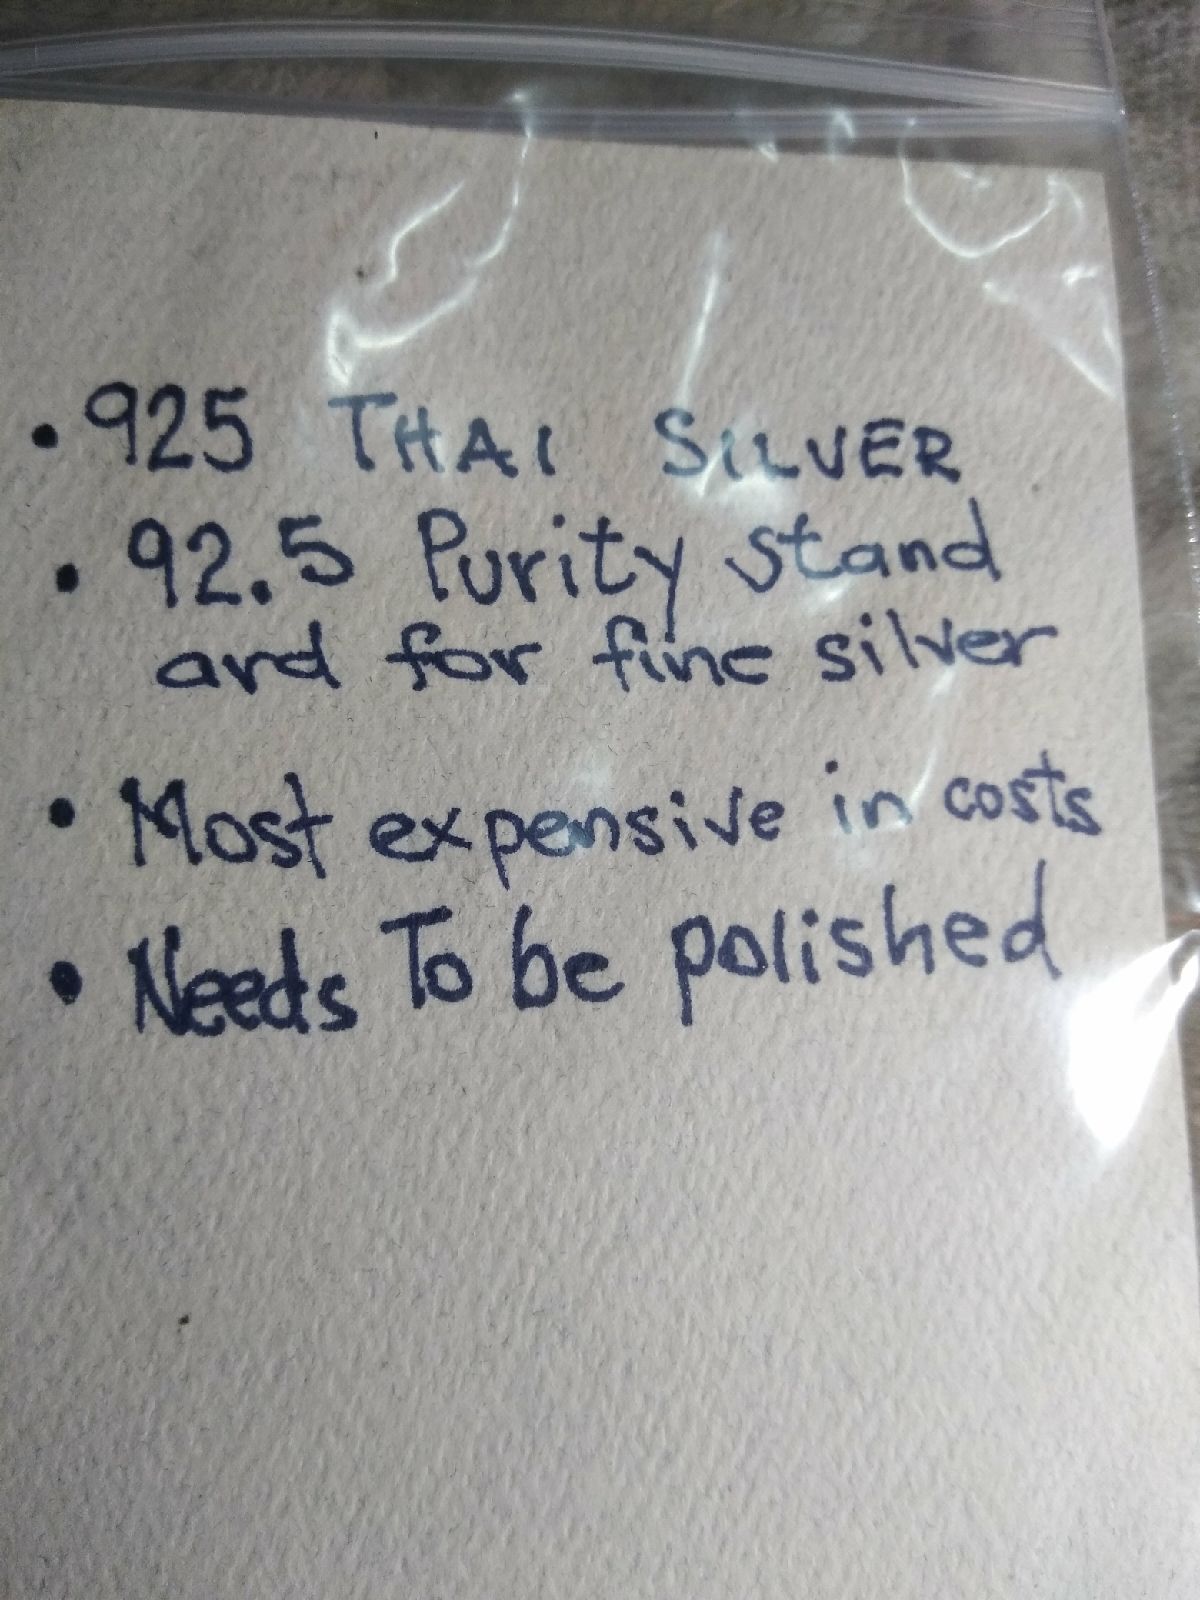 • 925 THAI SILVER
• 92.5 Purity stand
ard for fine silver
• Most expensive in costs
• Needs To be polished